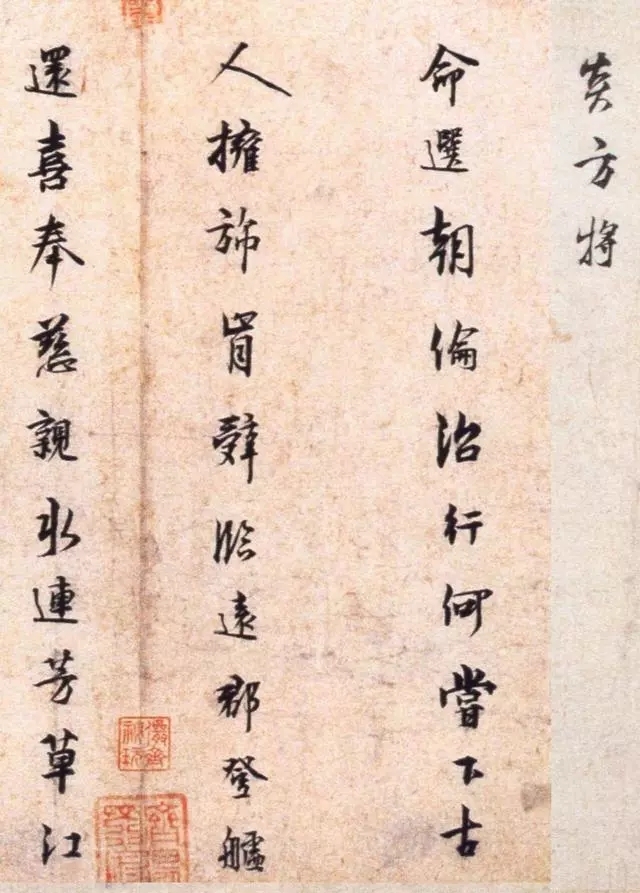 炎方将
命選朝倫治行何嘗下古
人擁斾肯辭臨遠郡登艫
還喜奉慈親水連芳草江